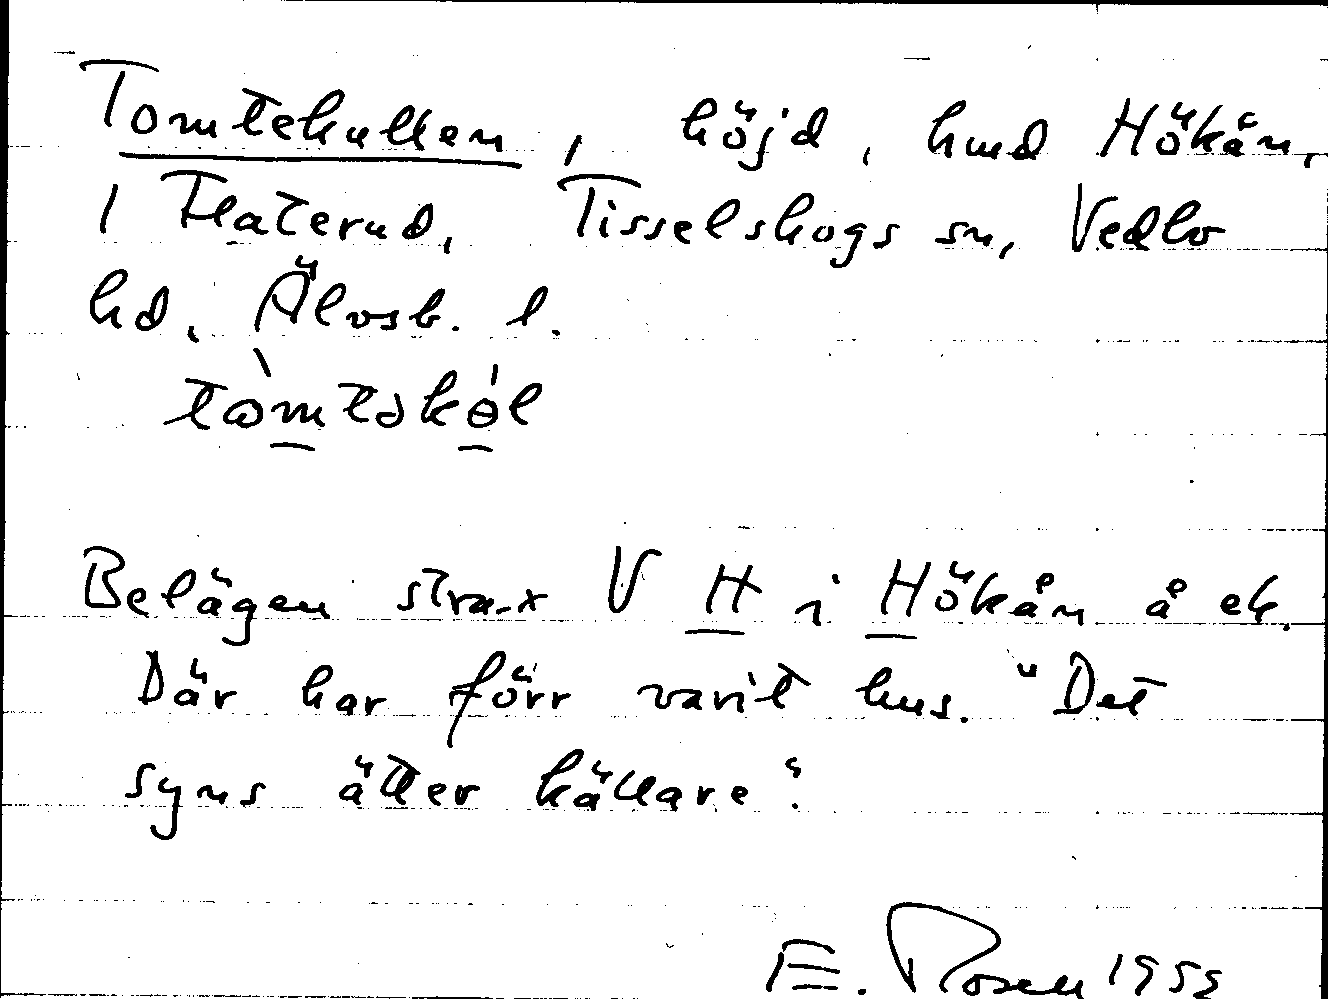 Tomtekullen, höjd, hmd Hökån,
1 Flaterud, Tisselskogs sn, Vedbo
hd, Älvsb. l.
tòmtəkɵ́l
Belägen strax V H i Hökån å ek.
Där har förr varit hus. "Det
syns ätter källare".
E. Rosen 1955